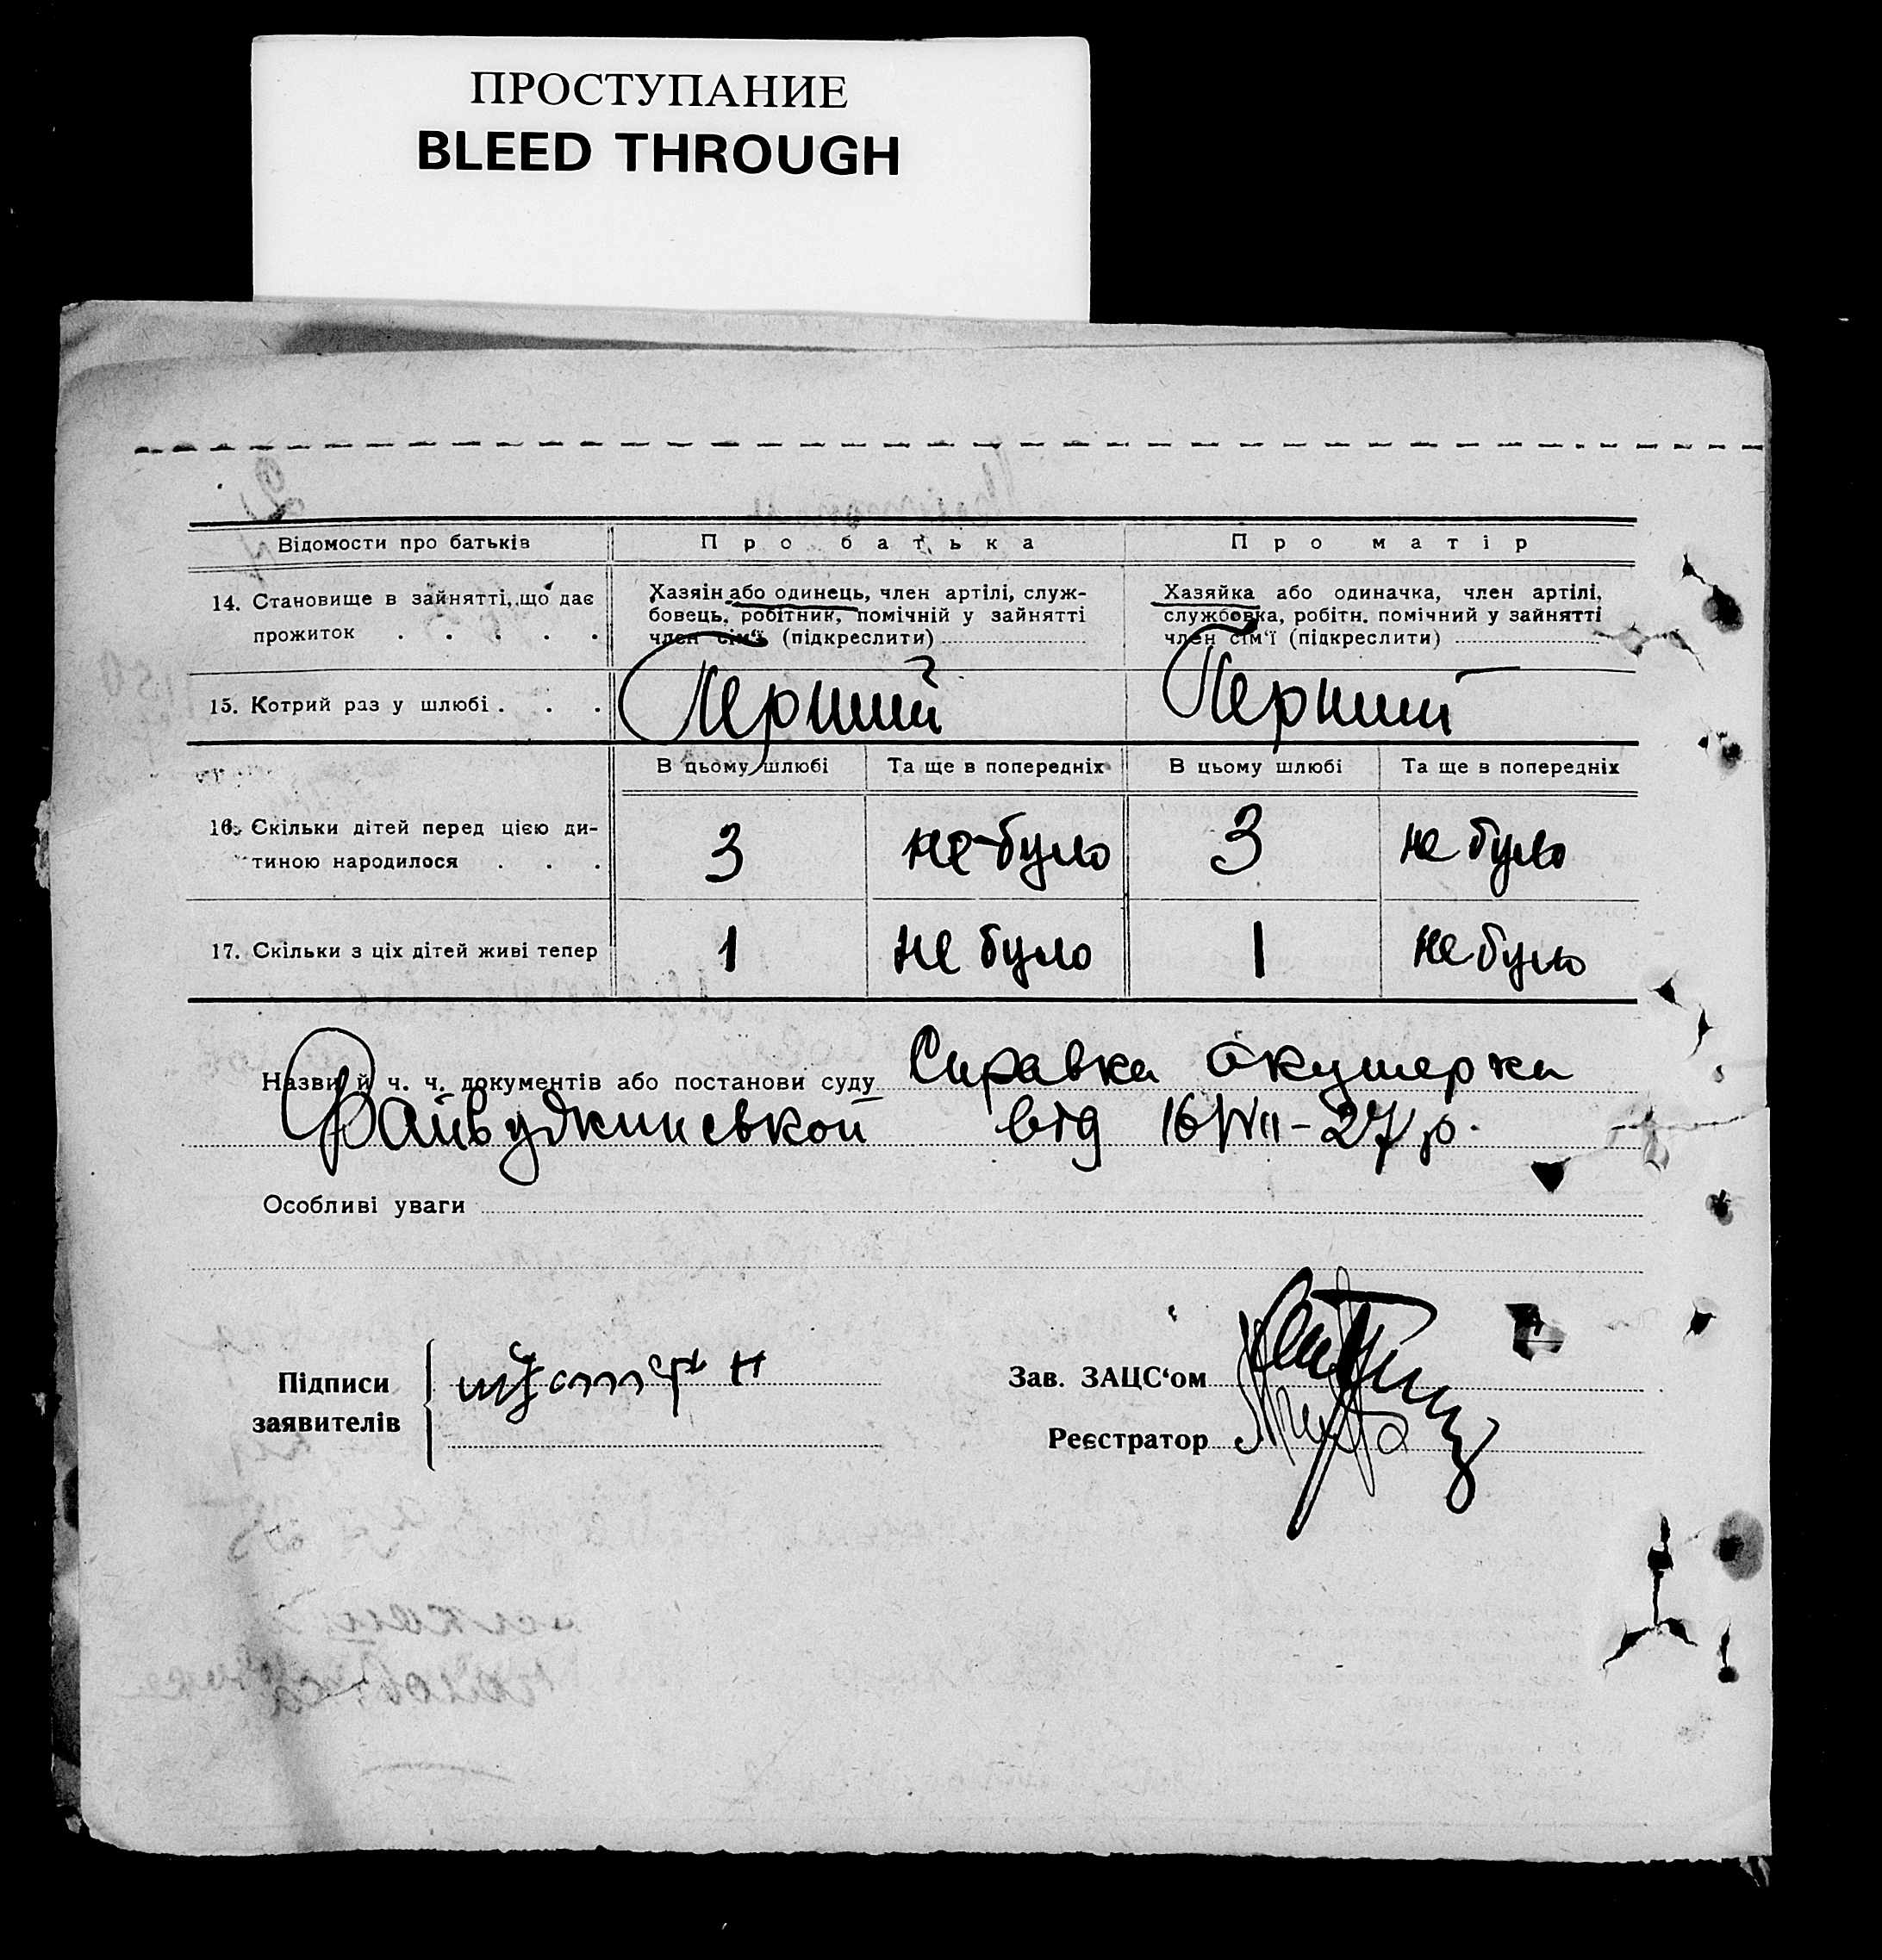 ПРОСТУПАНИЕ
BLEED THROUGH
Відомости про батьків
Про батька
Про матір
14. Становище в зайнятті, що дає
прожиток . . . . .
Хазяін або одинець, член артілі, служ-
бовець, робітник, помічній у зайнятті
член сім'ї (підкреслити)
Хазяйка або одиначка, член артілі,
службовка, робітн. помічний у зайнятті
член сім'ї (підкреслити)
15. Котрий раз у шлюбі . . .
Перший
Перший
В цьому шлюбі
Та ще в попередніх
В цьому шлюбі
Та ще в попередніх
16. Скільки дітей перед цією ди-
тиною народилося . . .
3
не було
3
не було
17. Скільки з ціх дітей живі тепер
1
не було
1
не було
Назви й ч. ч. документів або постанови суду Справка акушерки
від 16/VIII-27 р.
Особливі уваги
Підписи
заявителів
Зав. ЗАЦС'ом
Реєстратор